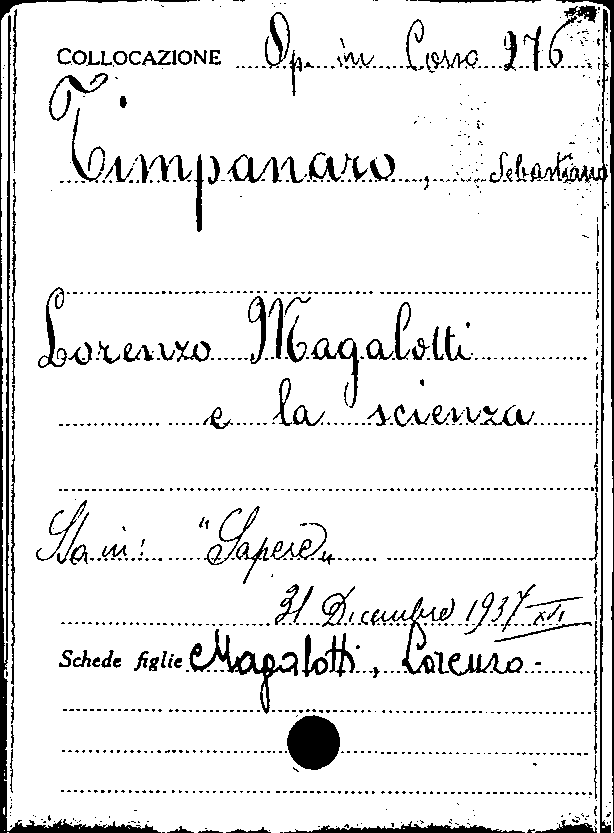 COLLOCAZIONE Op. in Corso 276
Timpanaro, Sebastiano
Lorenzo Magalotti
e la scienza
Sta in: "Sapere„
31 Dicembre 1937 XVI
Schede figlie Magalotti, Lorenzo-